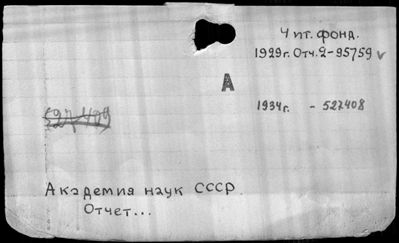 Чит. фонд.
1929г. Отч. 2-95759 v
А
1934г. - 527408
527409
Академия наук СССР.
Отчет...